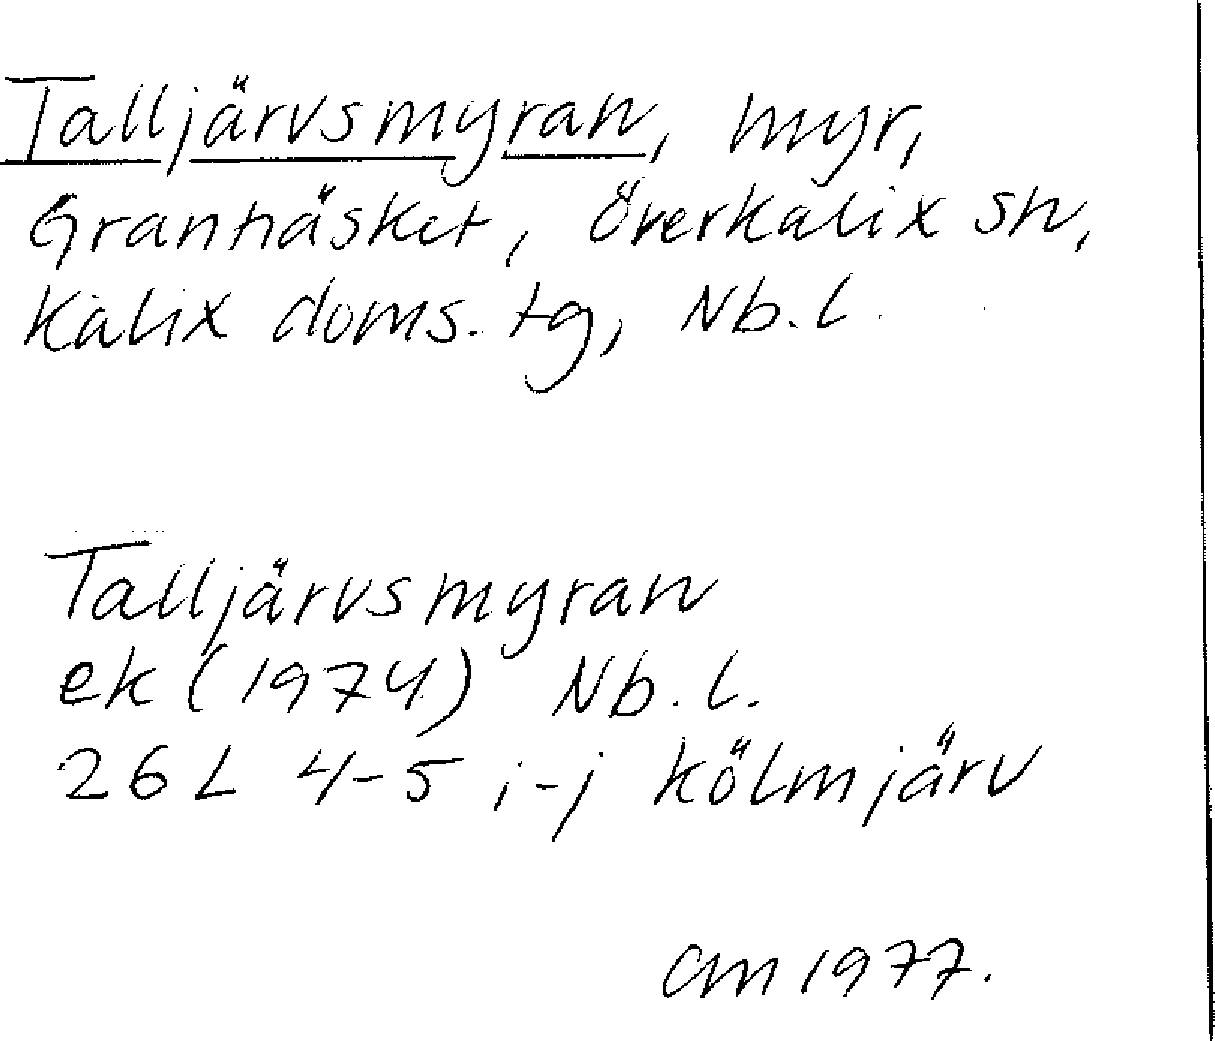 Talljärvsmyran, myr,
Grannäsket, Överkalix sn,
Kalix doms. tg, Nb. l.
Talljärvsmyran
ek (1974) Nb. l.
26 L 4-5 i-j Kölmjärv
CM 1977.